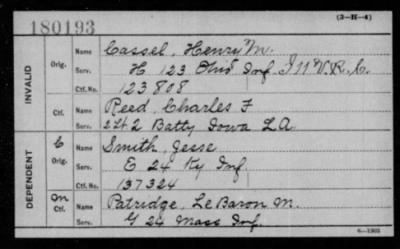 180193
(3-H-4)
INVALID Orig. Name Cassel, Henry M.
Serv. H 123 Ohio Inf.
Ctf. No. 123808
Ctf. Name Reed, Charles F
Serv. 2 Lt 2 Batty Iowa L A
DEPENDENT C Orig. Name Smith, Jesse
Serv. E 24 Ky Inf
Ctf. No. 137324
Ctf. Name Patridge, LeBaron M.
Serv. G 24 Mass Inf.